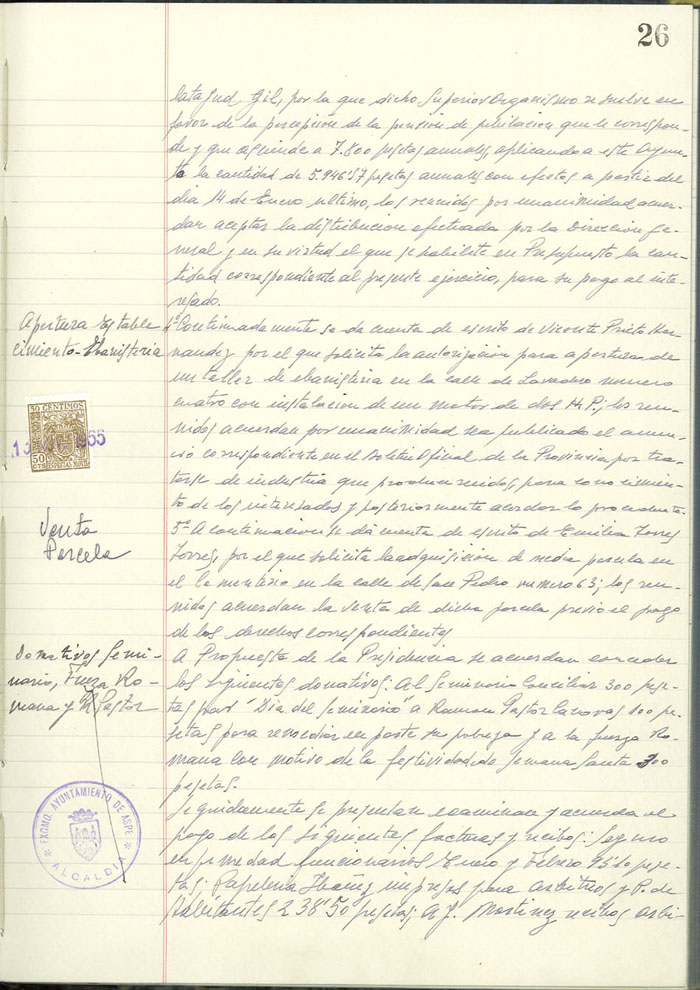 26
latayud Gil, por la que dicho Superior Organismo resuelve en
favor de la percepción de la pensión de jubilacion que le correspon-
de y que asciende a 7.800 pesetas anuales, aplicando a este Ayunta
la cantidad de 5.946'17 pesetas anuales con efectos a partir del
dia 14 de Enero ultimo, los reunidos por unanimidad acuer-
dan aceptar la distribucion efectuada por la Direccion Ge-
neral y en su virtud el que se habilite en Presupuesto la can-
tidad correspondiente al presente ejercicio, para su pago al inte-
resado.
Apertura estable
cimiento-Ebanisteria
4º Continuadamente se da cuenta de escrito de Vicente Prieto Her-
nandez por el que solicita la autorización para apertura de
un taller de ebanisteria en la calle de Lavadero numero
cuatro con instalacion de un motor de dos H.P.; los reu-
nidos acuerdan por unanimidad sea publicado el anun-
cio correspondiente en el Boletin Oficial de la Provincia por tra-
tarse de industria que producen ruidos, para conocimien-
to de los interesados y posteriormente acordar lo procedente.
50 CENTIMOS
50 CTS ESPECIAL MOVIL
1965
Venta
Parcela
5º A continuacion se dá cuenta de escrito de Emilia Torres
Torres, por el que solicita la adquisicion de media parcela en
el Cementerio en la calle de San Pedro numero 63; los reu-
nidos acuerdan la venta de dicha parcela previo el pago
de los derechos correspondientes
Donativos Semi-
nario, Fuerza Ro-
mana y R Pastor
A Propuesta de la Presidencia se acuerdan conceder
los siguientes donativos: Al Seminario Conciliar 300 pese-
tas para "Dia del Seminario" a Ramon Pastor Canovas 100 pe-
setas para remediar en parte su pobreza y a la fuerza Ro-
mana con motivo de la festividad de Semana Santa 300
pesetas.
EXCMO. AYUNTAMIENTO DE ASPE
* ALCALDIA *
Seguidamente se presentan examinan y acuerda el
pago de las siguientes facturas y recibos: Seguro
enfermedad funcionarios Enero y Febrero pese-
tas; Papeleria Ibañez impresos para Arbitrios y P. de
Habitantes 238'50 pesetas; A J. Martinez recibos arbi-